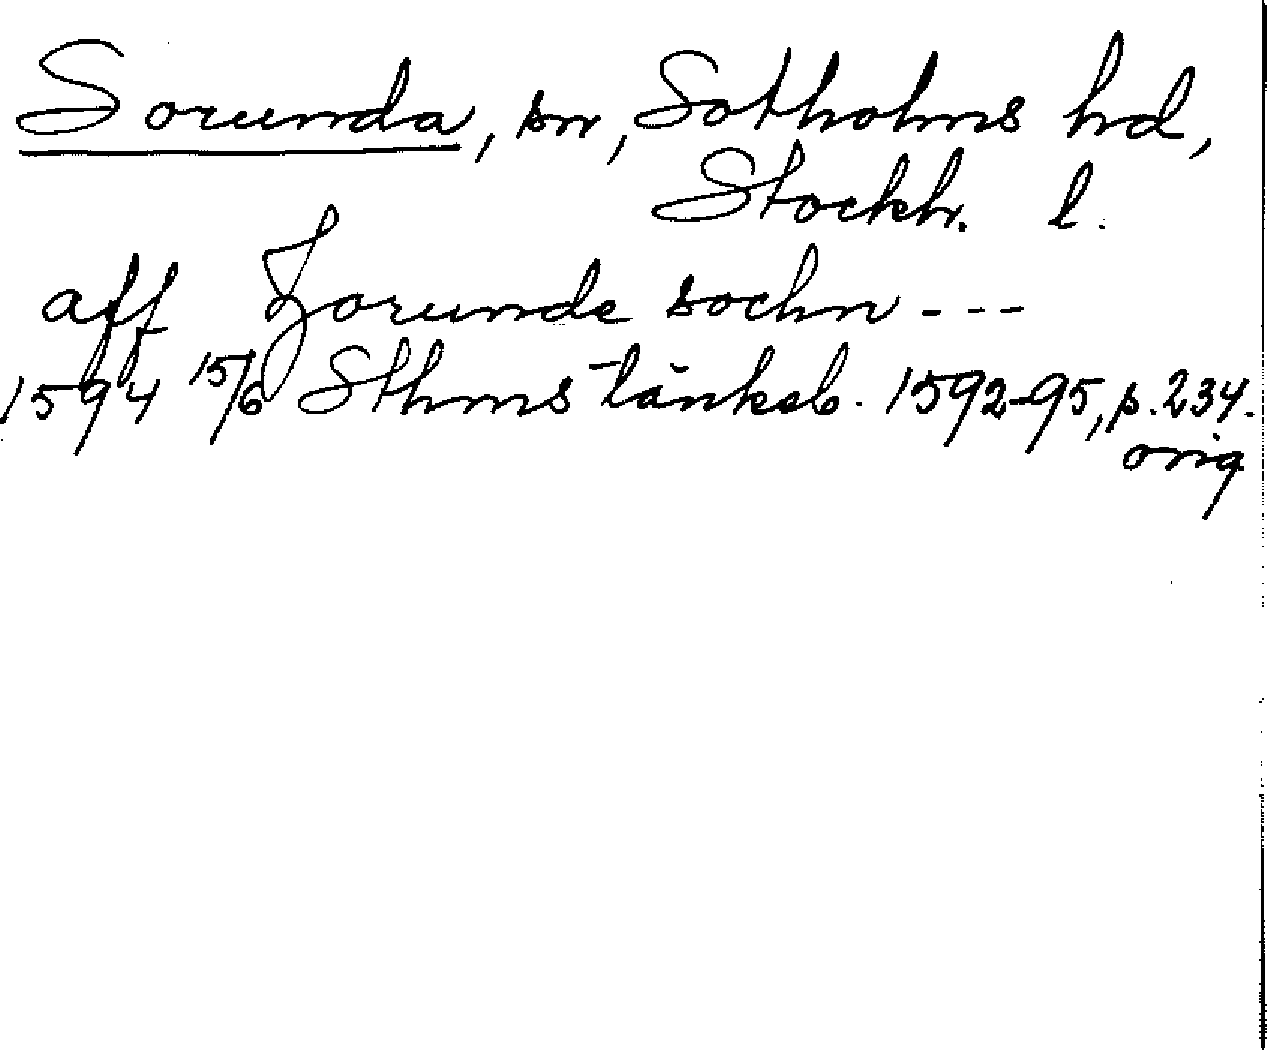 Sorunda, sn, Sotholms hd,
Stockh. l.
aff Zorunde sochn ---
1594 15/6 Sthms tänkeb. 1592-95, p. 234.
orig